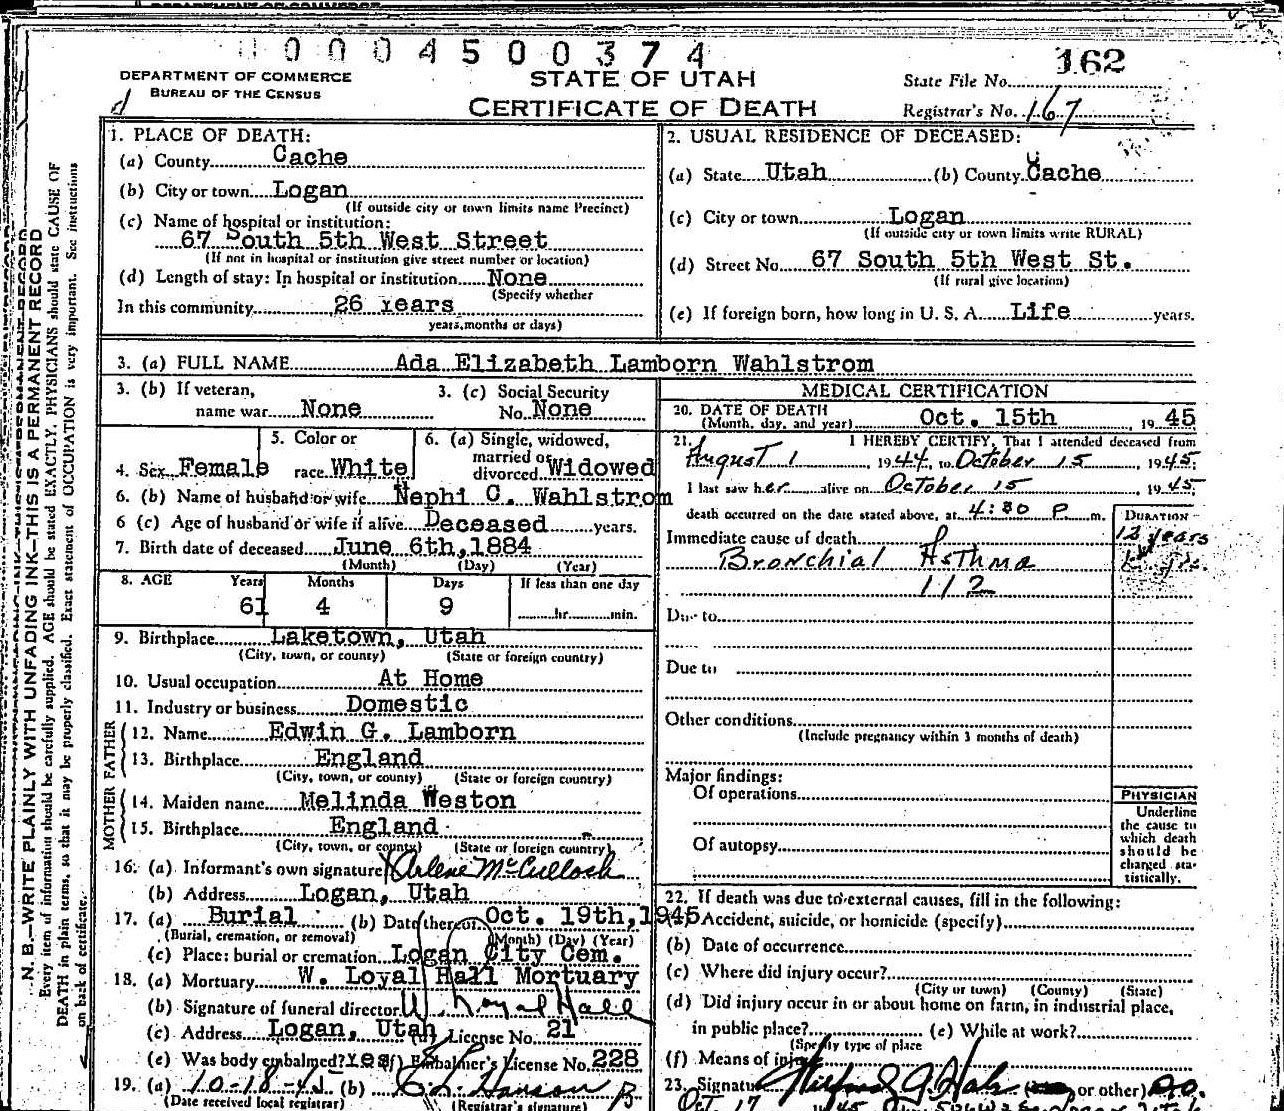 0004500374
162
DEPARTMENT OF COMMERCE
BUREAU OF THE CENSUS
STATE OF UTAH
CERTIFICATE OF DEATH
State File No.
Registrar's No. 167
d
N. B.—WRITE PLAINLY WITH UNFADING INK—THIS IS A PERMANENT RECORD
Every item of information should be carefully supplied. AGE should be stated EXACTLY. PHYSICIANS should state CAUSE OF
DEATH in plain terms, so that it may be properly classified. Exact statement of OCCUPATION is very important. See instructions
on back of certificate.
1. PLACE OF DEATH:
(a) County Cache
(b) City or town Logan
(If outside city or town limits name Precinct)
(c) Name of hospital or institution:
67 South 5th West Street
(If not in hospital or institution give street number or location)
(d) Length of stay: In hospital or institution None
(Specify whether
In this community 26 Years
years, months or days)
2. USUAL RESIDENCE OF DECEASED:
(a) State Utah (b) County Cache
(c) City or town Logan
(If outside city or town limits write RURAL)
(d) Street No. 67 South 5th West St.
(If rural give location)
(e) If foreign born, how long in U. S. A. Life years.
3. (a) FULL NAME Ada Elizabeth Lamborn Wahlstrom
3. (b) If veteran,
name war None
3. (c) Social Security
No. None
4. Sex Female
5. Color or
race White
6. (a) Single, widowed,
married or
divorced Widowed
6. (b) Name of husband or wife Nephi C. Wahlstrom
6 (c) Age of husband or wife if alive Deceased years.
7. Birth date of deceased June 6th, 1884
(Month) (Day) (Year)
8. AGE Years Months Days If less than one day
61 4 9 hr. min.
9. Birthplace Laketown, Utah
(City, town, or county) (State or foreign country)
10. Usual occupation At Home
11. Industry or business Domestic
FATHER
12. Name Edwin G. Lamborn
13. Birthplace England
(City, town, or county) (State or foreign country)
MOTHER
14. Maiden name Melinda Weston
15. Birthplace England
(City, town, or county) (State or foreign country)
16. (a) Informant's own signature Arlene McCulloch
(b) Address Logan, Utah
17. (a) Burial (b) Date thereof Oct. 19th, 1945
(Burial, cremation, or removal) (Month) (Day) (Year)
(c) Place: burial or cremation Logan City Cem.
18. (a) Mortuary W. Loyal Hall Mortuary
(b) Signature of funeral director W. Loyal Hall
(c) Address Logan, Utah (d) License No. 21
(e) Was body embalmed? Yes (f) Embalmer's License No. 228
19. (a) 10-18-45 (b)
(Date received local registrar) (Registrar's signature)
MEDICAL CERTIFICATION
20. DATE OF DEATH
(Month, day, and year) Oct. 15th, 1945
21. I HEREBY CERTIFY, That I attended deceased from
August 1, 1944, to October 15, 1945;
I last saw her alive on October 15, 1945;
death occurred on the date stated above, at 4:30 P. m.
DURATION
Immediate cause of death 12 years
Bronchial Asthma
112
Due to
Due to
Other conditions
(Include pregnancy within 3 months of death)
Major findings:
Of operations
Of autopsy
PHYSICIAN
Underline
the cause to
which death
should be
charged sta-
tistically.
22. If death was due to external causes, fill in the following:
Accident, suicide, or homicide (specify)
(b) Date of occurrence
(c) Where did injury occur?
(City or town) (County) (State)
(d) Did injury occur in or about home on farm, in industrial place,
in public place? (e) While at work?
(Specify type of place
(f) Means of injury
23. Signature or other)
Oct 17